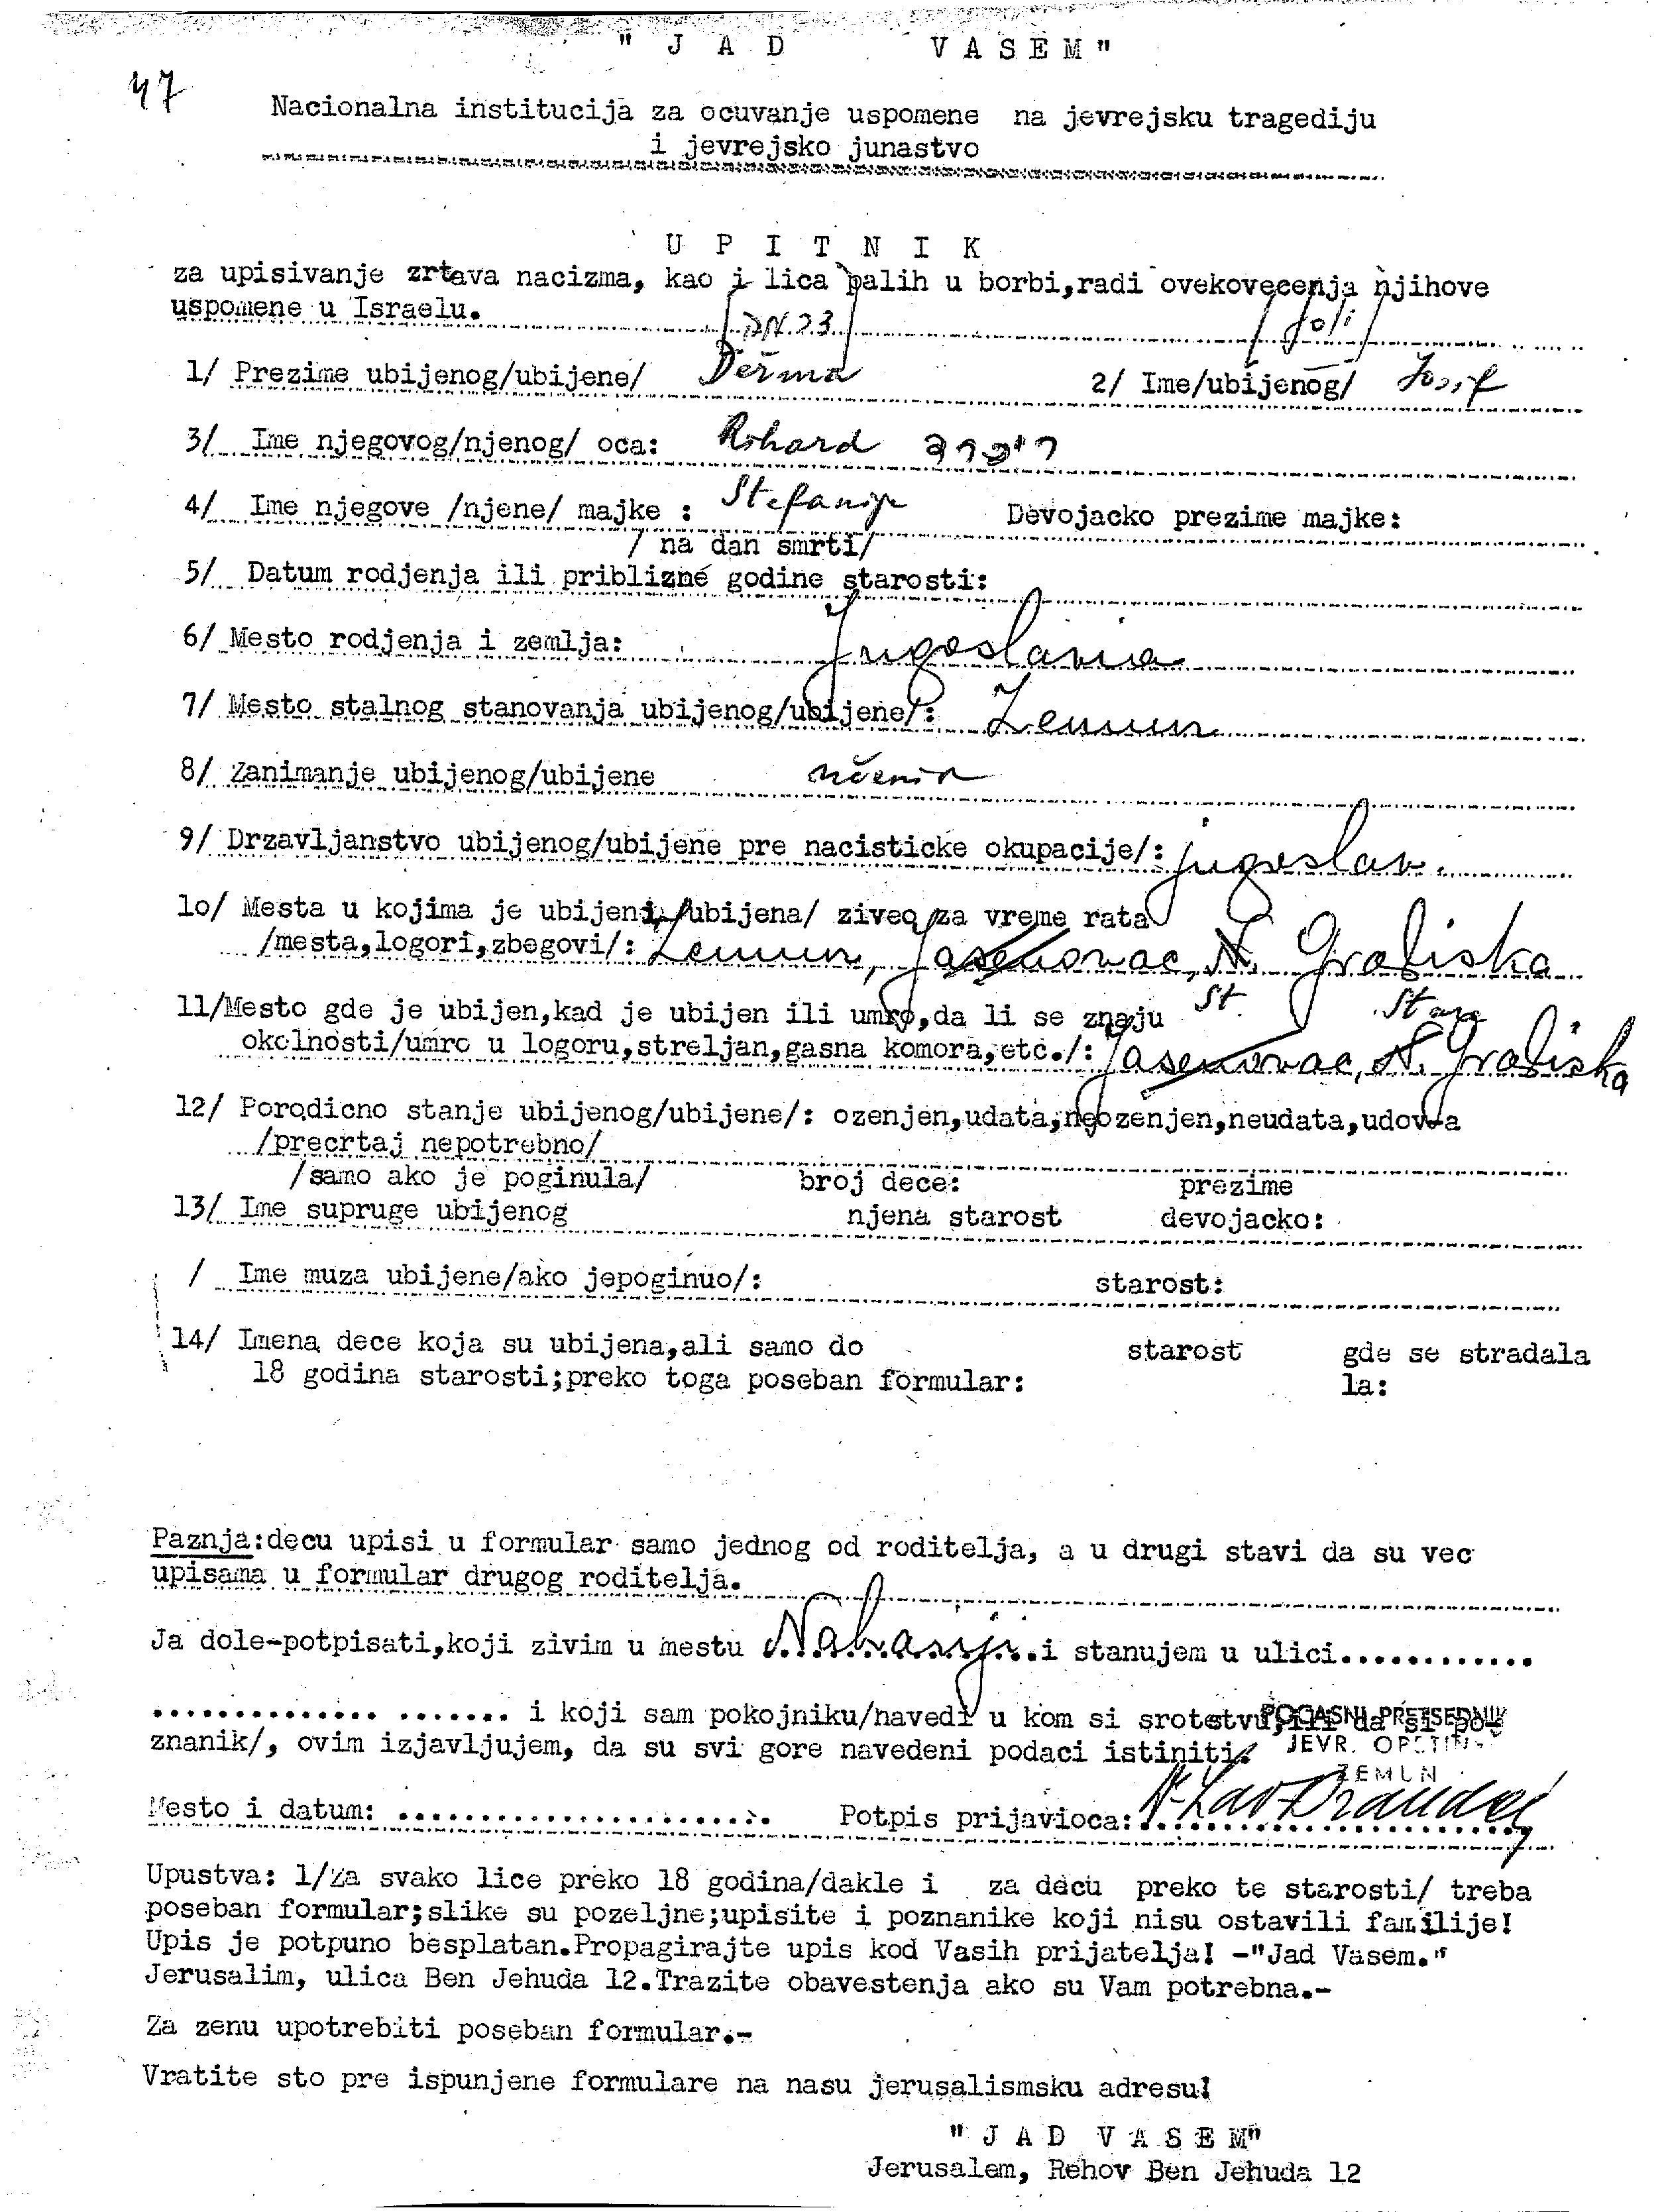 " J A D VASEM"
47
Nacionalna institucija za ocuvanje uspomene na jevrejsku tragediju
i jevrejsko junastvo
U P I T N I K
za upisivanje zrtava nacizma, kao i lica palih u borbi,radi ovekovecenja njihove
uspomene u Israelu.
1/ Prezime ubijenog/ubijene/ Derma 2/ Ime/ubijenog/ Josif
3/ Ime njegovog/njenog/ oca: Rihard
4/ Ime njegove /njene/ majke : Stefanija Devojacko prezime majke:
/ na dan smrti/
5/ Datum rodjenja ili priblizne godine starosti:
6/ Mesto rodjenja i zemlja: Jugoslavia
7/ Mesto stalnog stanovanja ubijenog/ubijene/: Zemun
8/ Zanimanje ubijenog/ubijene
9/ Drzavljanstvo ubijenog/ubijene pre nacisticke okupacije/: jugoslav.
lo/ Mesta u kojima je ubijeni /ubijena/ ziveo za vreme rata
/mesta,logori,zbegovi/: Zemun, Jasenovac, N. Gradiska
St.
11/Mesto gde je ubijen,kad je ubijen ili umro,da li se znaju
Stara
okolnosti/umro u logoru,streljan,gasna komora,etc./: Jasenovac, N. Gradiska
12/ Porodicno stanje ubijenog/ubijene/: ozenjen,udata,neozenjen,neudata,udovva
/precrtaj nepotrebno/
/samo ako je poginula/ broj dece: prezime
13/ Ime supruge ubijenog njena starost devojacko:
/ Ime muza ubijene/ako jepoginuo/: starost:
14/ Imena dece koja su ubijena,ali samo do starost gde se stradala
18 godina starosti;preko toga poseban formular: la:
Paznja:decu upisi u formular samo jednog od roditelja, a u drugi stavi da su vec
upisama u formular drugog roditelja.
Ja dole-potpisati,koji zivim u mestu ......... i stanujem u ulici.............
.............. ....... i koji sam pokojniku/navedi u kom si srotstvu,ili da si po-
POČASNI PRETSEDNIK
znanik/, ovim izjavljujem, da su svi gore navedeni podaci istiniti.
JEVR. OPŠTINE
ZEMUN
Mesto i datum: ....................... Potpis prijavioca:
Upustva: 1/Za svako lice preko 18 godina/dakle i za decu preko te starosti/ treba
poseban formular;slike su pozeljne;upisite i poznanike koji nisu ostavili familije!
Upis je potpuno besplatan.Propagirajte upis kod Vasih prijatelja! -"Jad Vasem."
Jerusalim, ulica Ben Jehuda 12.Trazite obavestenja ako su Vam potrebna.-
Za zenu upotrebiti poseban formular.-
Vratite sto pre ispunjene formulare na nasu jerusalismsku adresu!
" J A D V A S E M"
Jerusalem, Rehov Ben Jehuda 12